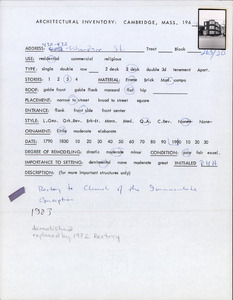 ARCHITECTURAL INVENTORY: CAMBRIDGE, MASS, 196
ADDRESS: Windsor St Tract Block
USE: residential commercial religious
TYPE: single double row 2 deck 3 deck double 3d tenement Apart.
STORIES: 1 2 3 4 MATERIAL: Frame Brick Mod. compo
ROOF: gable front gable flank mansard flat hip
PLACEMENT: narrow to street broad to street square
ENTRANCE: flank front side front center
STYLE: L.Geo. Grk.Rev. Brkt-It. Mans. Med. Q.A. C.Rev. None
ORNAMENT: little moderate elaborate
DATE: 1790 1830 10 20 30 40 50 60 70 80 90 1900 10 20 30
DEGREE OF REMODELING: drastic moderate minor CONDITION: poor fair excel.
IMPORTANCE TO SETTING: detrimental none moderate great INITIALED
DESCRIPTION: (for more important structures only)
Rectory to Church of the Immaculate
Conception
1903
demolished
replaced by 1972 Rectory